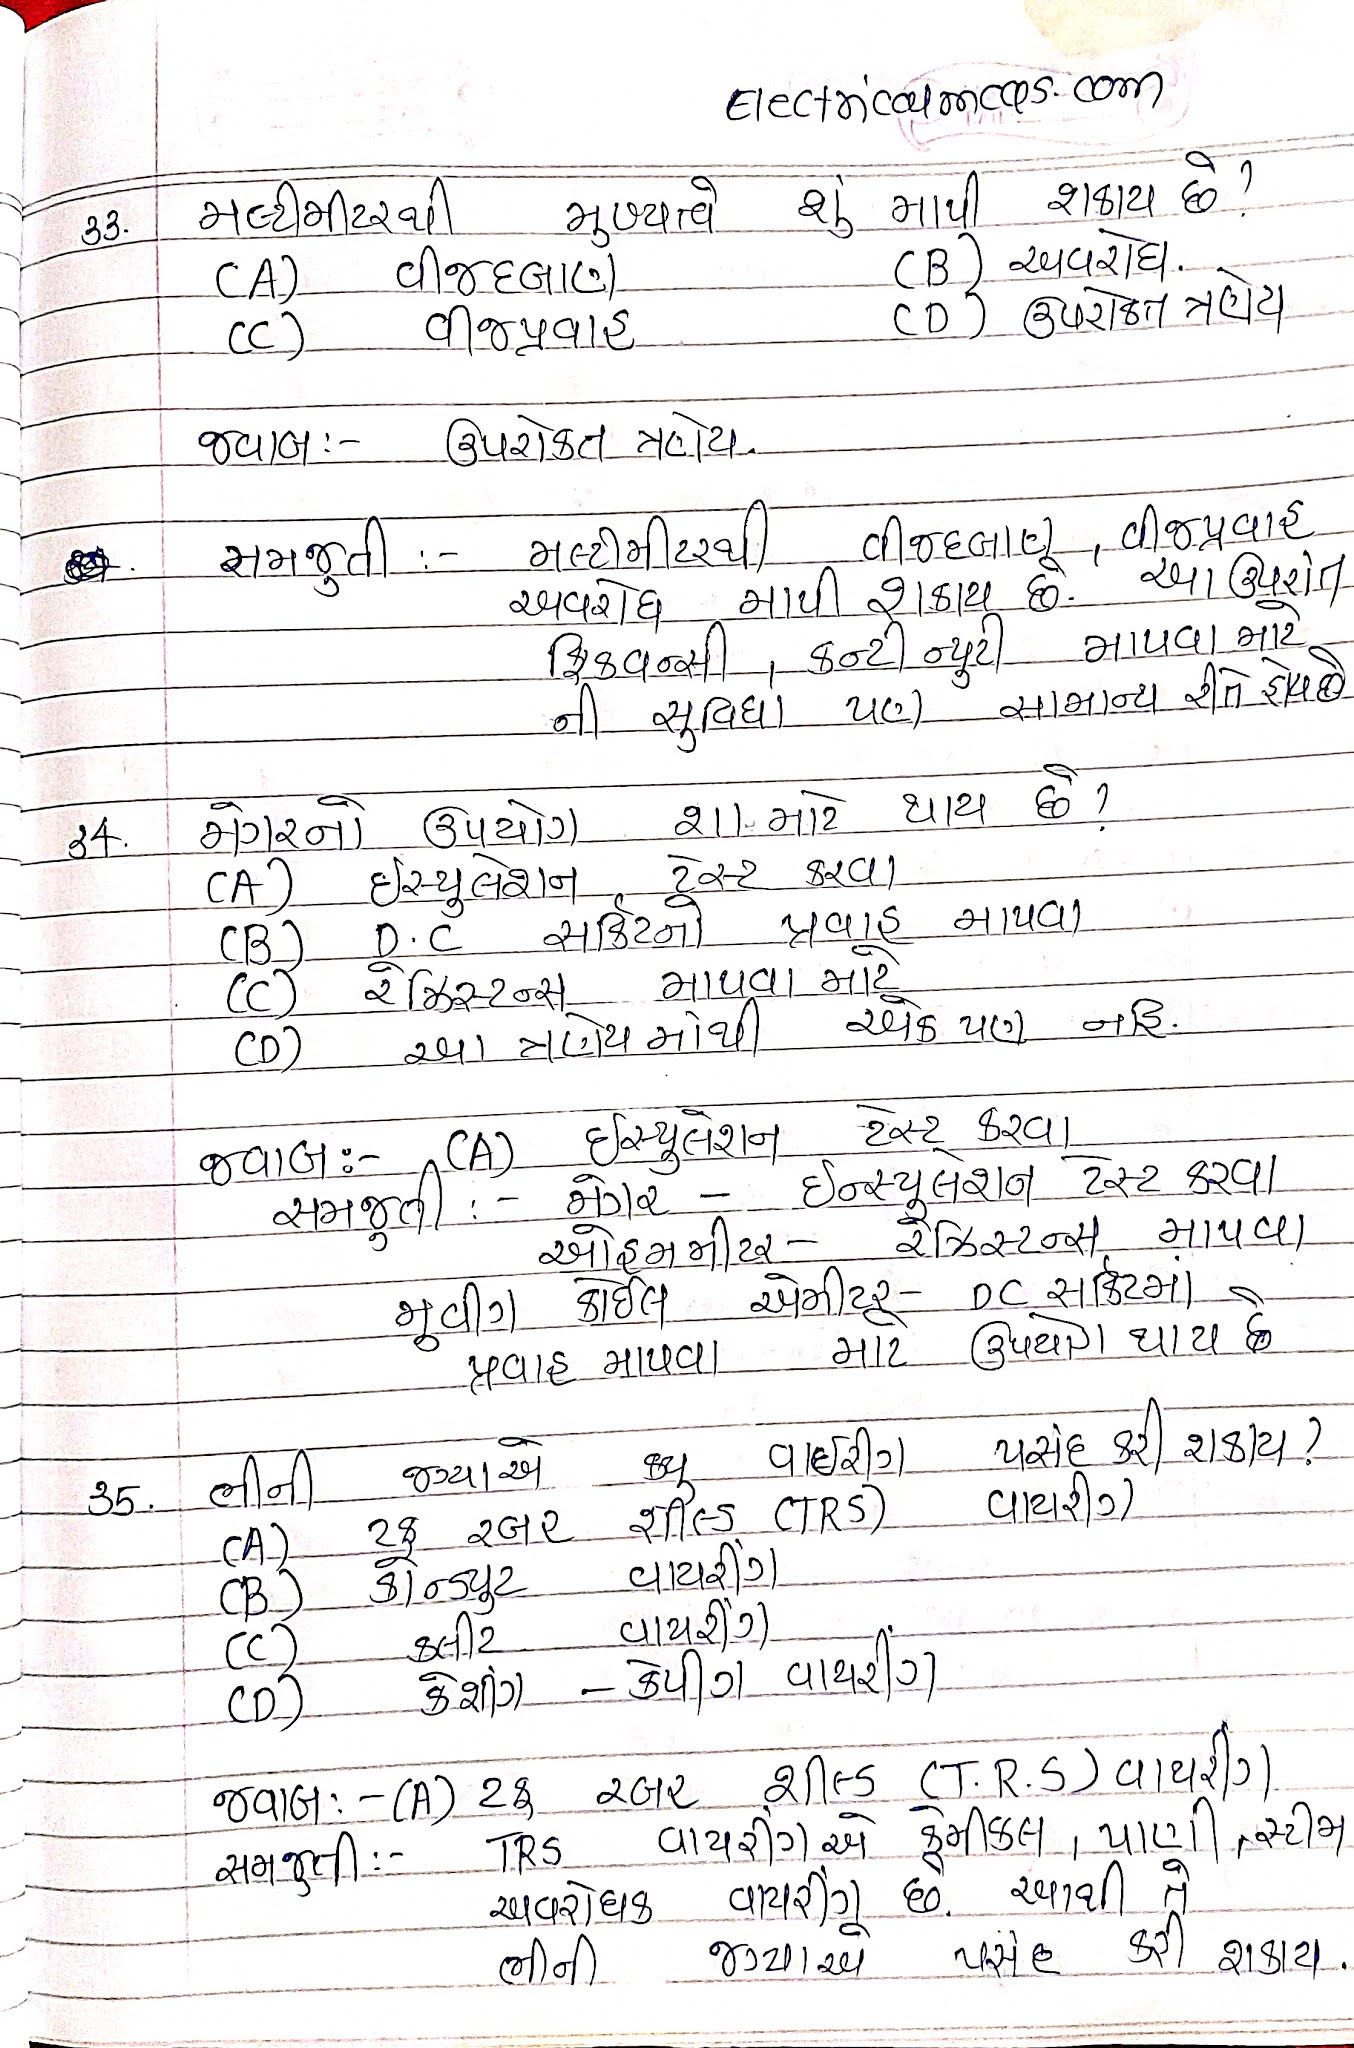 Electricalmcqs.com
33. મલ્ટીમીટરથી મુખ્યત્વે શું માપી શકાય છે?
(A) વીજદબાણ (B) અવરોધ.
(C) વીજપ્રવાહ (D) ઉપરોકત ત્રણેય
જવાબ:- ઉપરોકત ત્રણેય.
સમજુતી :- મલ્ટીમીટરથી વીજદબાણ, વીજપ્રવાહ
અવરોધ માપી શકાય છે. આ ઉપરાંત
ફ્રિકવન્સી, કન્ટીન્યુટી માપવા માટે
ની સુવિધા પણ સામાન્ય રીતે હોય છે
34. મેગરનો ઉપયોગ શા માટે થાય છે?
(A) ઈસ્યુલેશન ટેસ્ટ કરવા
(B) D.C સર્કિટનો પ્રવાહ માપવા
(C) રેઝિસ્ટન્સ માપવા માટે
(D) આ ત્રણેયમાંથી એક પણ નહિ.
જવાબ:- (A) ઈસ્યુલેશન ટેસ્ટ કરવા
સમજુતી :- મેગર - ઈન્સ્યુલેશન ટેસ્ટ કરવા
ઓહમમીટર - રેઝિસ્ટન્સ માપવા
મુવીગ કોઈલ એમીટર - DC સર્કિટમાં
પ્રવાહ માપવા માટે ઉપયોગ થાય છે
35. ભીની જગ્યાએ ક્યુ વાઈરીગ પસંદ કરી શકાય?
(A) ટફ રબર શીલ્ડ (TRS) વાયરીગ
(B) કોન્ડ્યુટ વાયરીંગ
(C) કલીટ વાયરીંગ
(D) કેશીંગ - કેપીગ વાયરીંગ
જવાબ:- (A) ટફ રબર શીલ્ડ (T.R.S) વાયરીંગ
સમજુતી:- TRS વાયરીંગ એ કેમીકલ, પાણી, સ્ટીમ
અવરોધક વાયરીંગ છે. આથી તે
ભીની જગ્યાએ પસંદ કરી શકાય.